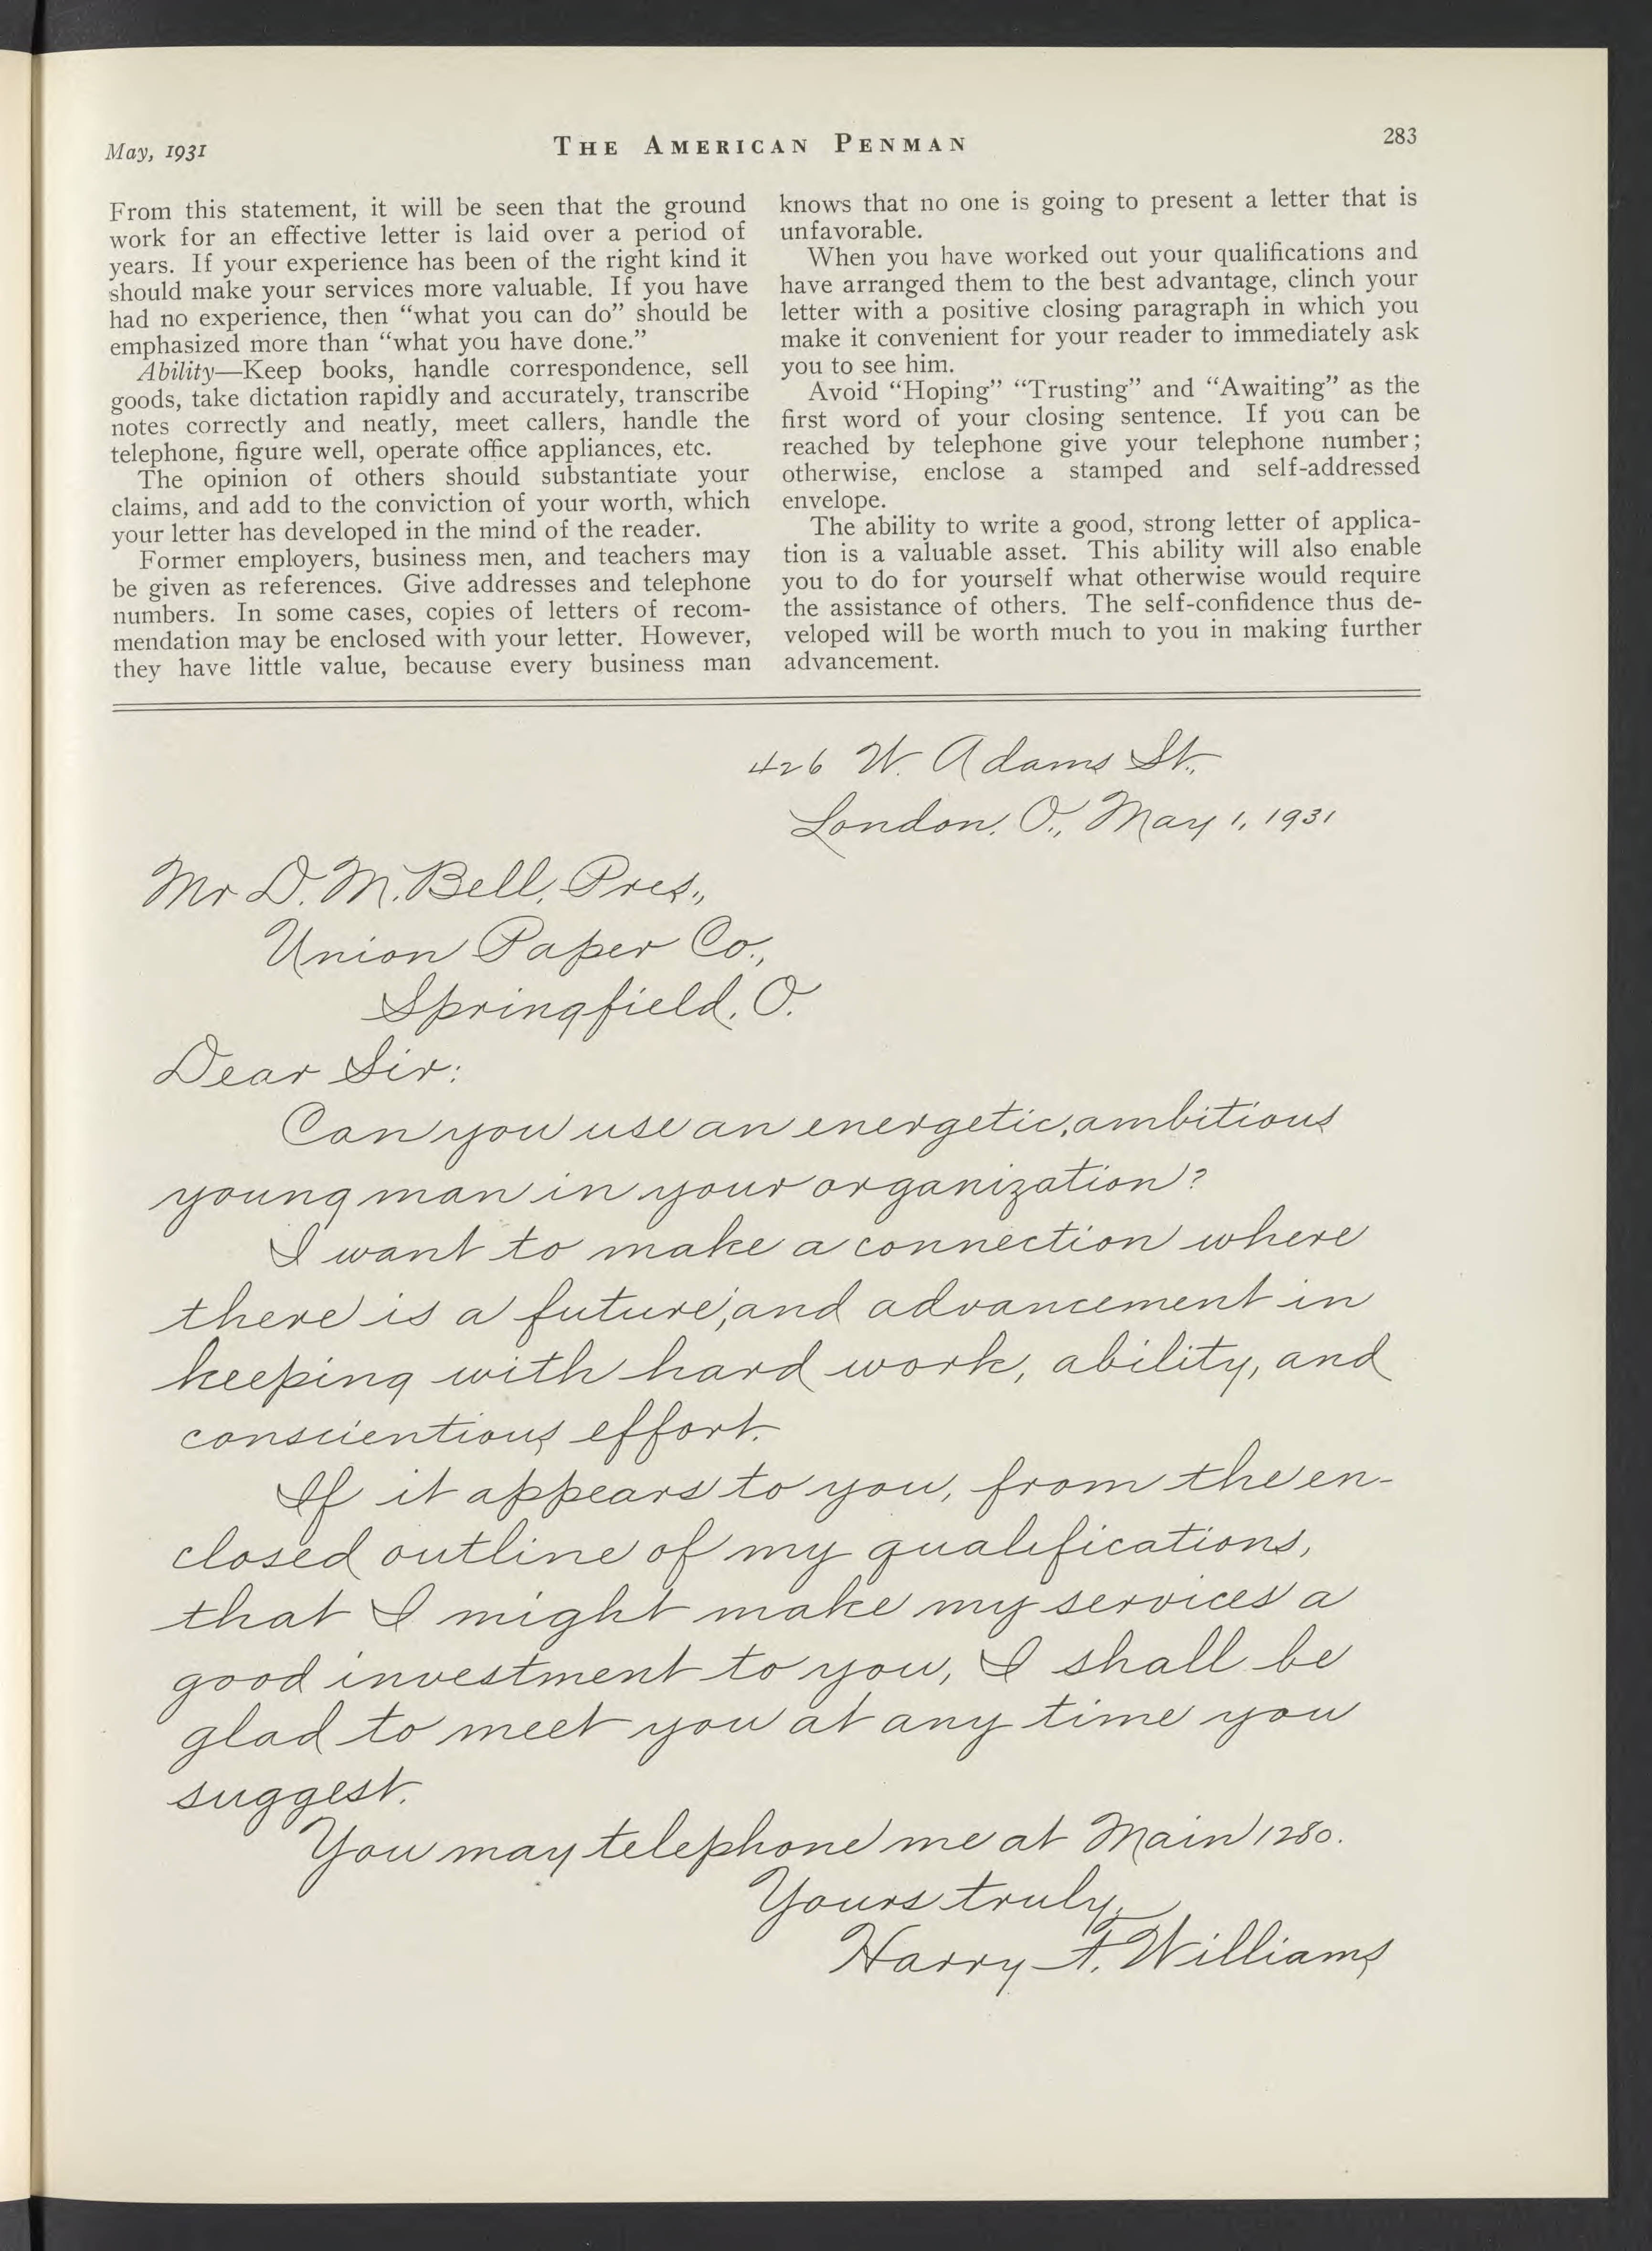 May, 1931
THE AMERICAN PENMAN
283
From this statement, it will be seen that the ground
work for an effective letter is laid over a period of
years. If your experience has been of the right kind it
should make your services more valuable. If you have
had no experience, then “what you can do” should be
emphasized more than “what you have done.”
Ability—Keep books, handle correspondence, sell
goods, take dictation rapidly and accurately, transcribe
notes correctly and neatly, meet callers, handle the
telephone, figure well, operate office appliances, etc.
The opinion of others should substantiate your
claims, and add to the conviction of your worth, which
your letter has developed in the mind of the reader.
Former employers, business men, and teachers may
be given as references. Give addresses and telephone
numbers. In some cases, copies of letters of recom-
mendation may be enclosed with your letter. However,
they have little value, because every business man
knows that no one is going to present a letter that is
unfavorable.
When you have worked out your qualifications and
have arranged them to the best advantage, clinch your
letter with a positive closing paragraph in which you
make it convenient for your reader to immediately ask
you to see him.
Avoid “Hoping” “Trusting” and “Awaiting” as the
first word of your closing sentence. If you can be
reached by telephone give your telephone number;
otherwise, enclose a stamped and self-addressed
envelope.
The ability to write a good, strong letter of applica-
tion is a valuable asset. This ability will also enable
you to do for yourself what otherwise would require
the assistance of others. The self-confidence thus de-
veloped will be worth much to you in making further
advancement.
426 W. Adams St.,
London, O., May 1, 1931
Mr D. M. Bell, Pres.,
Union Paper Co.,
Springfield, O.
Dear Sir:
Can you use an energetic, ambitious
young man in your organization?
I want to make a connection where
there is a future, and advancement in
keeping with hard work, ability, and
conscientious effort.
If it appears to you, from the en-
closed outline of my qualifications,
that I might make my services a
good investment to you, I shall be
glad to meet you at any time you
suggest.
You may telephone me at Main 1280.
Yours truly,
Harry F. Williams